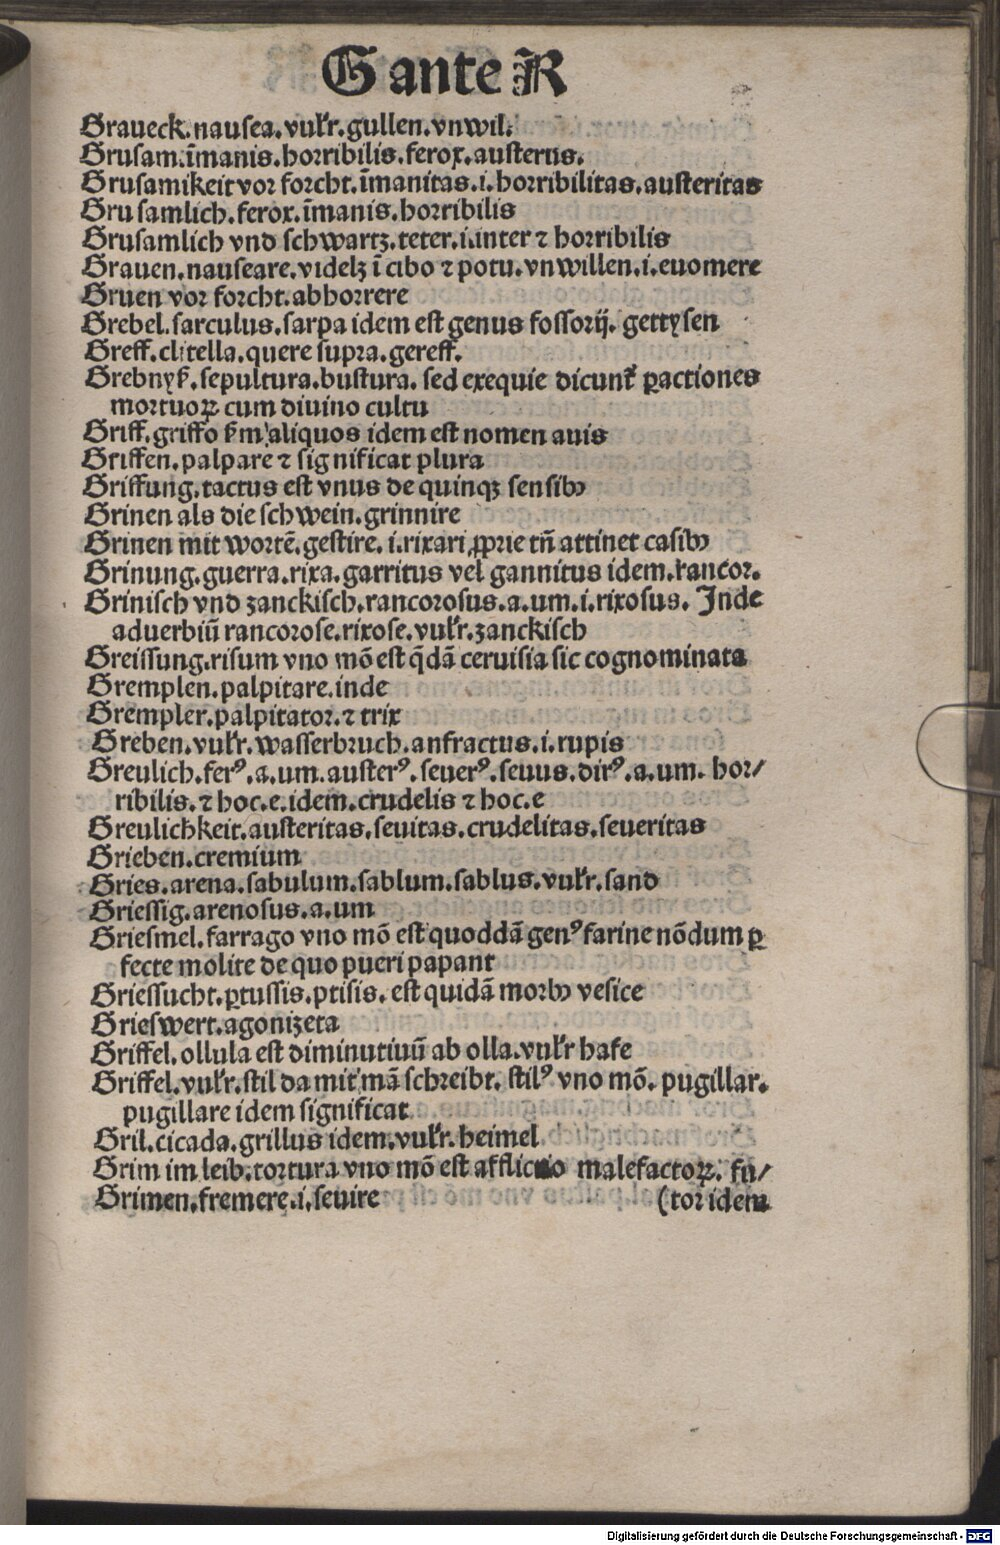 G ante R̃
Graueck.nausea.vul'r.gullen.vnwil.
Grusam.īmanis.horribilis.ferox.austerus.
Grusamikeit vor forcht.īmanitas.i.horribilitas.austeritas
Gru samlich.ferox.īmanis.horribilis
Grusamlich vnd schwartz.teter.i.inter ⁊ horribilis
Grauen.nauseare.videlꝫ ī cibo ⁊ potu.vnwillen.i.euomere
Gruen vor forcht.abhorrere
Grebel.sarculus.sarpa idem est genus fossorij.gettysen
Greff.clitella.quere supra.gereff.
Grebnyß.sepultura.bustura. sed exequie dicunt᷑ ꝑactiones
mortuoꝝ cum diuino cultu
Griff.griffo ẜm aliquos idem est nomen auis
Griffen.palpare ⁊ significat plura
Griffung.tactus est vnus de quinqꝫ sensibꝰ
Grinen als die schwein.grinnire
Grinen mit wortē.gestire. i.rixari ꝓprie tñ attinet casibꝰ
Grinung.guerra.rixa.garritus vel gannitus idem.rancor.
Grinisch vnd zanckisch.rancorosus.a.um.i.rixosus. Inde
aduerbiū rancorose.rixose.vul'r.zanckisch
Greissung.risum vno mō est q̄dā ceruisia sic cognominata
Gremplen.palpitare.inde
Grempler.palpitator.⁊ trix
Greben.vul'r.wasserbruch.anfractus.i.rupis
Greulich.ferꝰ.a.um.austerꝰ.seuerꝰ.seuus.dirꝰ.a.um. hor/
ribilis.⁊ hoc.e.idem.crudelis ⁊ hoc.e
Greulichkeit.austeritas.seuitas.crudelitas.seueritas
Grieben.cremium
Gries.arena.sabulum.sablum.sablus.vul'r.sand
Griessig.arenosus.a.um
Griesmel.farrago vno mō est quoddā genꝰ farine nōdum ꝑ
fecte molite de quo pueri papant
Griessucht.ꝑtussis.ptisis. est quidā morbꝰ vesice
Grieswert.agonizeta
Griffel.ollula est diminutiuū ab olla.vul'r hafe
Griffel.vul'r.stil da mit mā schreibt. stilꝰ vno mō. pugillar.
pugillare idem significat
Gril.cicada.grillus idem.vul'r.heimel
Grim im leib.tortura vno mō est afflictio malefactoꝝ. fu/
Grimen.fremere.i.seuire (tor idem
Digitalisierung gefördert durch die Deutsche Forschungsgemeinschaft - DFG